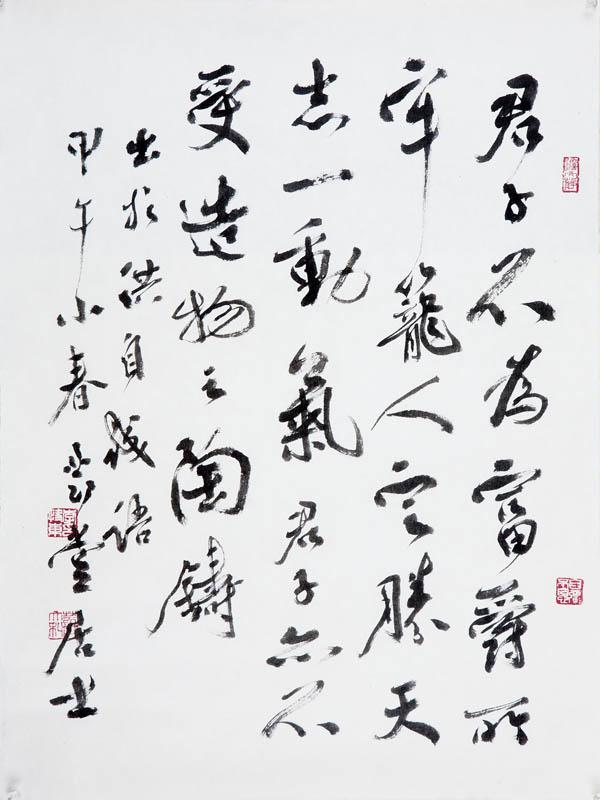 君子不為富爵所
牢籠人定勝天
志一動氣君子亦不
受造物之陶鑄
出於洪自誠語
甲午小春堂居士